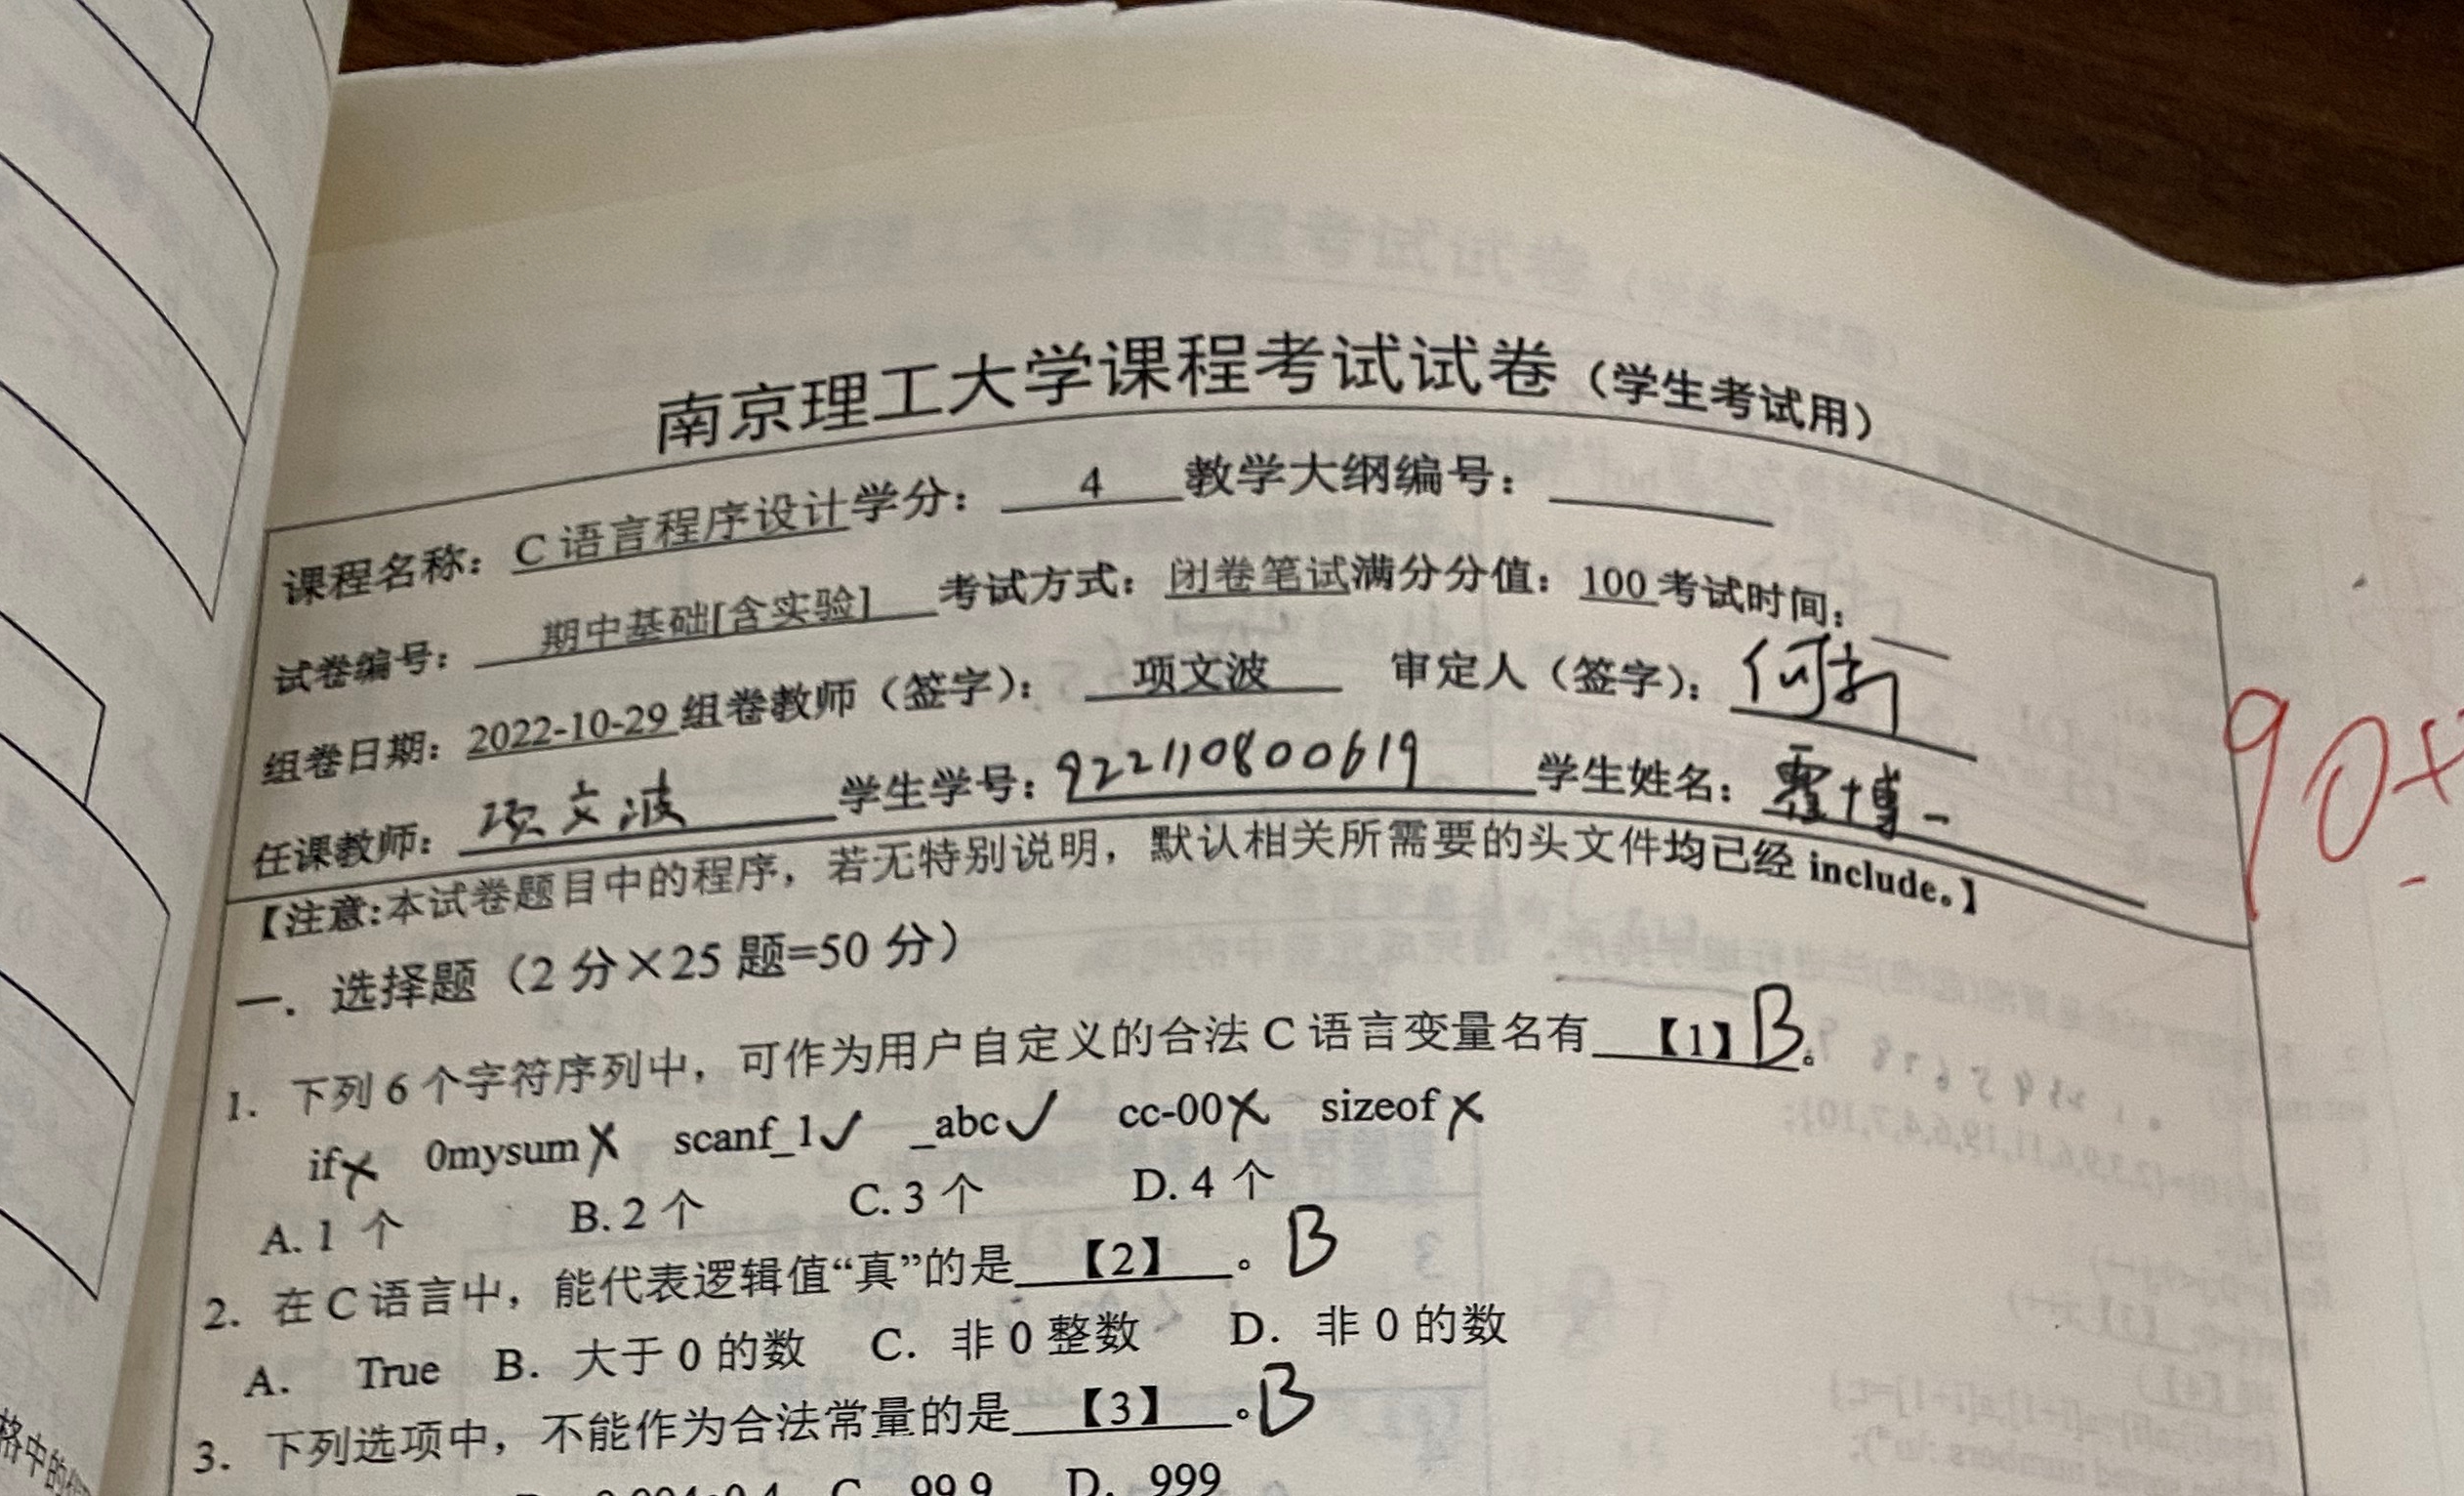 南京理工大学课程考试试卷（学生考试用）
课程名称： C 语言程序设计学分： 4 教学大纲编号：
试卷编号： 期中基础[含实验] 考试方式：闭卷笔试满分分值：100 考试时间：
组卷日期：2022-10-29 组卷教师（签字）： 项文波 审定人（签字）：
任课教师： 项文波 学生学号：922110800619 学生姓名： 霍博一
90+
【注意:本试卷题目中的程序，若无特别说明，默认相关所需要的头文件均已经 include。】
一．选择题（2 分×25 题=50 分）
1. 下列 6 个字符序列中，可作为用户自定义的合法 C 语言变量名有 【1】B。
if× 0mysum× scanf_1✓ _abc✓ cc-00× sizeof×
A. 1 个 B. 2 个 C. 3 个 D. 4 个
2. 在 C 语言中，能代表逻辑值“真”的是 【2】 。B
A. True B. 大于 0 的数 C. 非 0 整数 D. 非 0 的数
3. 下列选项中，不能作为合法常量的是 【3】 。B
C 99.9 D. 999
格中的